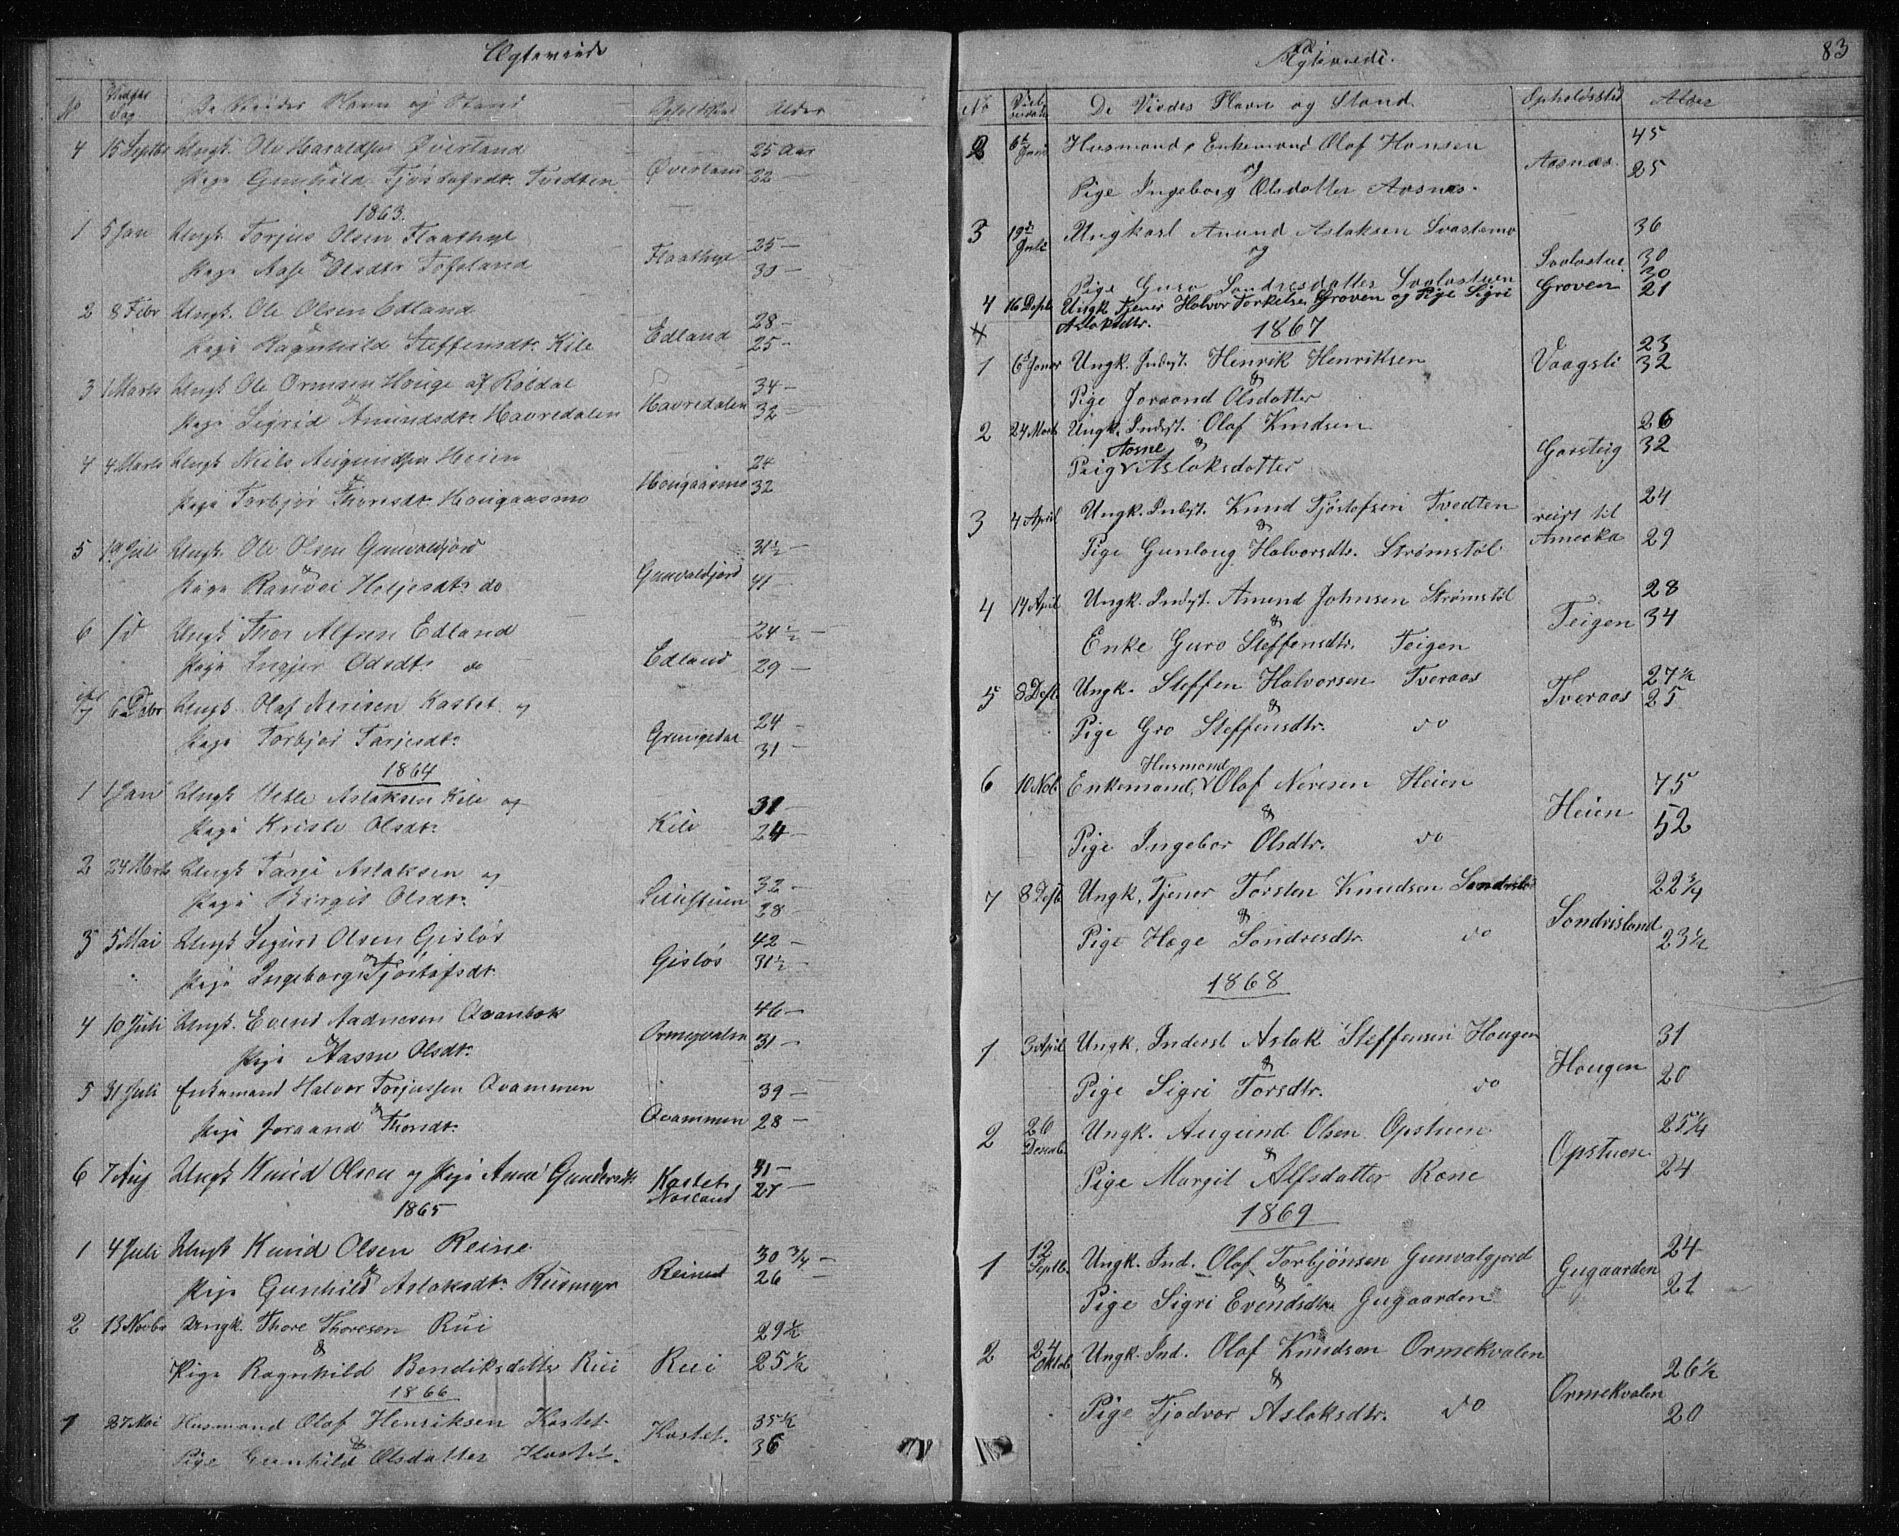 Ægteviede
No Vielses Dag De Viedes Navn og Stand Opholdssted Alder
4 15 Septbr Ungk. Ole Haraldsen Øverland 25 Aar
Pige Gunhild Tjøstofsdt. Tvedten Øverland 22 —
1863.
1 5 Jan Ungk. Torjus Olsen Flaathyl 25 —
& Pige Aase Olsdt. Tofsland Flaathyl 30 —
2 8 Febr Ungk. Ole Olsen Edland 28 —
& Pige Ragnhild Steffensdt. Kile Edland 25 —
3 1 Marts Ungk Ole Ormsen Houge af Røldal 34 —
& Pige Sigrid Amundsdt. Havredalen Havredalen 32 —
4 4 Marts Ungk Neils Augundsen Heien 24
& Pige Torbjør Thoresdt. Hougaasmo Hougaasmo 32
5 19 Juli Ungk. Ole Olsen Gunvaldjord 31½ —
& Pige Ranvei Heljesdt. do Gunvaldjord 41 —
6 Ungk Thor Alfsen Edland 24½ —
Pige Ingjer Odsdt. do Edland 29 —
7 6 Debr Ungk. Olaf Nerisen Kastet og 24 —
Pige Torbjør Tarjesdt. Grungedal 31 —
1864
1 1 Jan Ungk Vetle Aslaksen Kile og 31 —
Pige Kristi Olsdt. Kile 24 —
2 24 Marts Ungk Tarje Aslaksen og 32 —
Pige Birgit Olsdt. 28 —
3 5 Mai Ungk Sigurd Olsen Gisløs 42 —
& Pige Ingeborg Tjøstofsdt. Gisløs 31½ —
4 10 Juli Ungk. Evend Aadnesen Qvanbek 46 —
& Pige Aasne Olsdt. Ormeqvalen 31 —
5 31 Juli Enkemand Halvor Torjussen Qvammen 39 —
& Pige Joraand Thorsdt. Qvammen 28 —
6 7 Aug Ungk Knud Olsen og Pige Anne Gundersdt. Kastet Norland 31 — 27 —
1865
1 4 Juli Ungk Knud Olsen Reine 30 3/4 —
& Pige Gunhild Aslaksdt. Rusmyr Reine 26 —
2 13 Novbr Ungk. Thore Thoresen Rui 29½
& Pige Ragnhild Bendiksdatter Rui Rui 25½
1866
1 27 Mai Husmand Olaf Henriksen Kastet. 35½
& Pige Gunhild Olsdatter Kastet. Kastet. 36
Ægteviede. 83
No Vielsesdato De Viedes Navn og Stand. Opholdssted Alder
2 6te Juni Husmand, Enkemand Olaf Hansen 45
og Pige Ingeborg Olsdatter Aasnæs. Aasnæs. 25
3 19de Juli Ungkarl Anund Aslaksen Svastemo 36
og
Pige Guro Sondresdatter Svalastuen Svalastue 30
4 16 Septb Ungk. Tjener Halvor Torkelsen Groven og Pige Sigri Groven 20 21
Aslaksdtr.
1867
1 6 Janur Ungk. Indst. Henrik Henriksen 23
& Pige Joraand Olsdatter Vaagsli 32
2 24 Marts Ungk. Indst. Olaf Knudsen 26
& Pige Aasne Aslaksdatter Garsteig 32
3 4 April Ungk. Indst. Knud Tjøstofsen Tvedten 24
& Pige Gunloug Halvorsdtr. Strømstøl reist til Amerika 29
4 14 April Ungk. Indst. Amund Johnsen Strømstøl 28
& Enke Guro Steffensdtr. Teigen Teigen 34
5 8 Ungk. Steffen Halvorsen Tveraas 27½
& Pige Gro Steffensdtr. do Tveraas 25
6 10 Nob. Enkemand, Husmand Olaf Neresen Heien 75
& Pige Ingebor Olsdtr. do Heien 52
7 8 Ungk. Tjener Torsten Knudsen Sondrisland 22 3/4
& Pige Hæge Sondresdtr. do Sondrisland 23½
1868
1 3 April Ungk. Inderst Aslak Steffensen Hougen 31
& Pige Sigri Torsdtr. do Hougen 20
2 26 Decmb. Ungk. Augund Olsen Opstuen 25¼
& Pige Margit Alfsdatter Rone Opstuen 24
1869
1 12 Septb. Ungk. Ind. Olaf Torbjønsen Gunvalgjord 24
& Pige Sigri Evendsdtr. Gugaarden Gugaarden 21
2 24 Oktob. Ungk. Ind. Olaf Knudsen Ormekvalen 26½
& Pige Tjodvor Aslaksdtr. do Ormekvalen 20